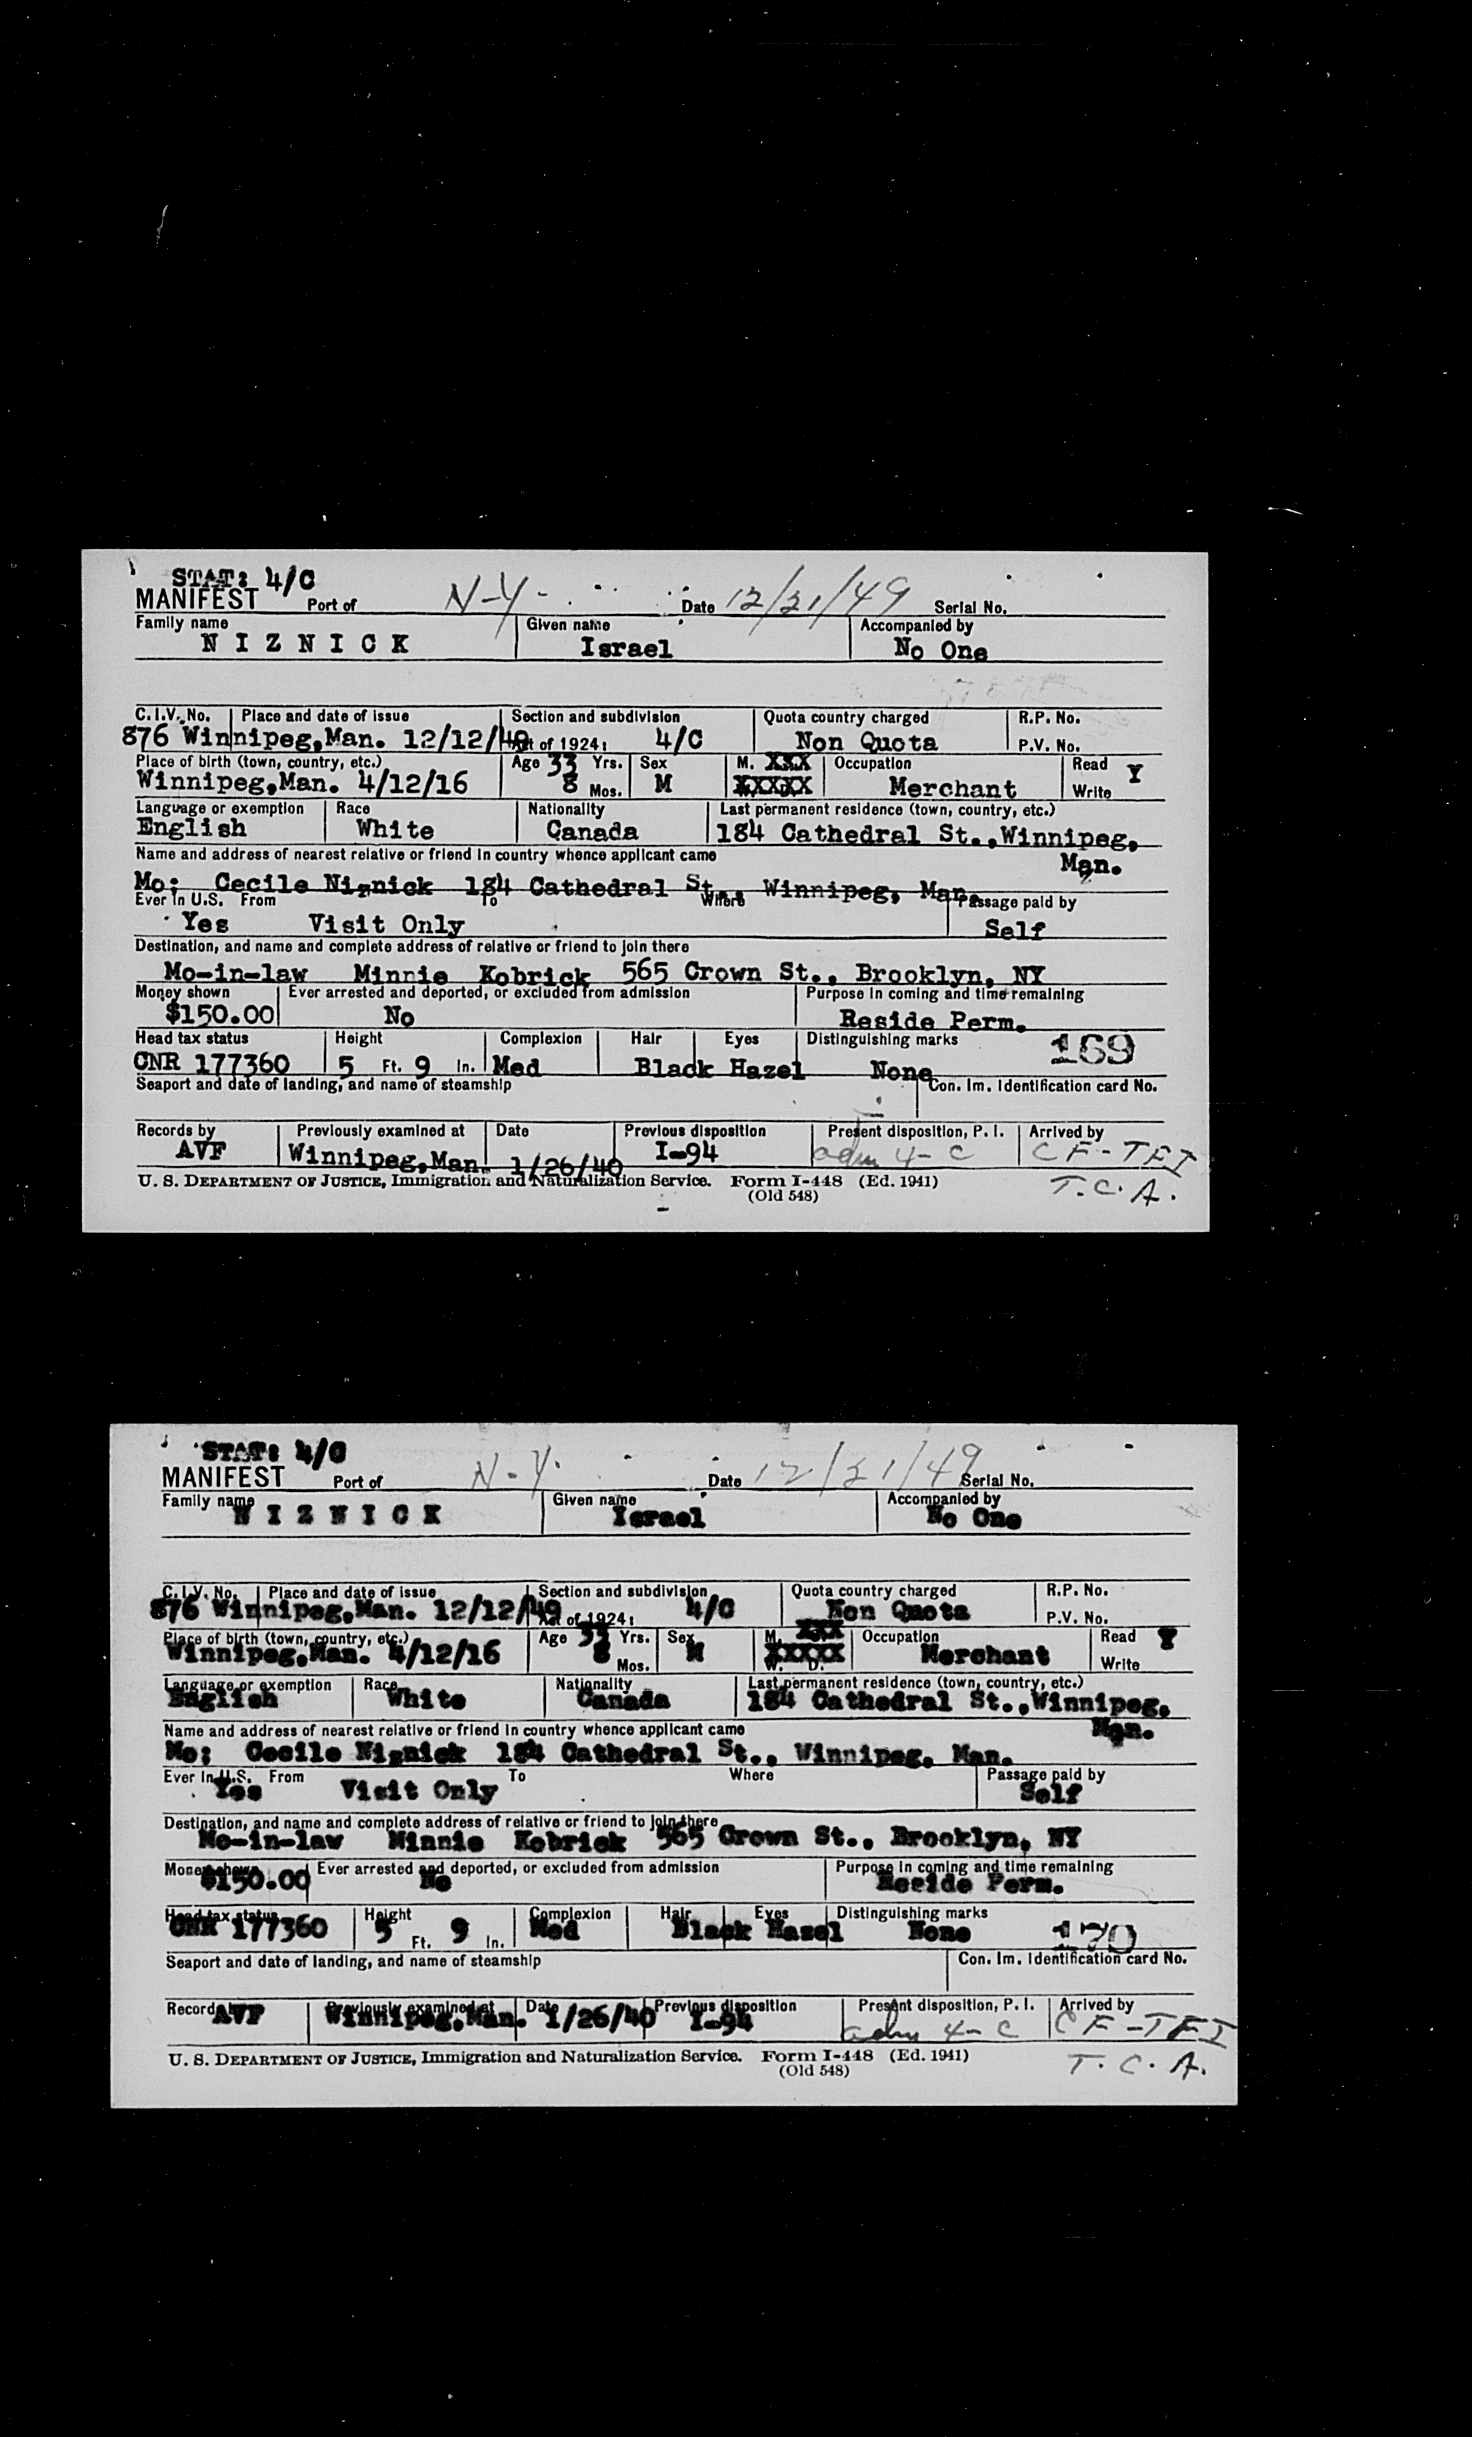 STAT: 4/C
MANIFEST Port of N-Y- Date 12/21/49 Serial No.
Family name Given name Accompanied by
N I Z N I C K Israel No One
C.I.V. No. Place and date of issue Section and subdivision Quota country charged R.P. No.
876 Winnipeg,Man. 12/12/49 Act of 1924: 4/C Non Quota P.V. No.
Place of birth (town, country, etc.) Age 33 Yrs. Sex M. XXX Occupation Read Y
Winnipeg,Man. 4/12/16 8 Mos. M XXXXX Merchant Write
Language or exemption Race Nationality Last permanent residence (town, country, etc.)
English White Canada 184 Cathedral St.,Winnipeg,
Name and address of nearest relative or friend in country whence applicant came Man.
Mo; Cecile Niznick 184 Cathedral St., Winnipeg, Man.
Ever in U.S. From To Where Passage paid by
Yes Visit Only Self
Destination, and name and complete address of relative or friend to join there
Mo-in-law Minnie Kobrick 565 Crown St., Brooklyn, NY
Money shown Ever arrested and deported, or excluded from admission Purpose in coming and time remaining
$150.00 No Reside Perm.
Head tax status Height Complexion Hair Eyes Distinguishing marks 169
CNR 177360 5 Ft. 9 In. Med Black Hazel None
Seaport and date of landing, and name of steamship Con. Im. Identification card No.
Records by Previously examined at Date Previous disposition Present disposition, P. I. Arrived by
AVF Winnipeg,Man. 1/26/40 I-94 adm 4-C CF-TFI
U. S. DEPARTMENT OF JUSTICE, Immigration and Naturalization Service. Form I-448 (Ed. 1941) T.C.A.
(Old 548)
STAT: 4/C
MANIFEST Port of N-Y. Date 12/21/49 Serial No.
Family name Given name Accompanied by
N I Z N I C K Israel No One
C.I.V. No. Place and date of issue Section and subdivision Quota country charged R.P. No.
876 Winnipeg,Man. 12/12/49 Act of 1924: 4/C Non Quota P.V. No.
Place of birth (town, country, etc.) Age 33 Yrs. Sex M. XXX Occupation Read Y
Winnipeg,Man. 4/12/16 8 Mos. M XXXXX W. D. Merchant Write
Language or exemption Race Nationality Last permanent residence (town, country, etc.)
English White Canada 184 Cathedral St.,Winnipeg,
Name and address of nearest relative or friend in country whence applicant came Man.
Mo; Cecile Niznick 184 Cathedral St., Winnipeg, Man.
Ever in U.S. From To Where Passage paid by
Yes Visit Only Self
Destination, and name and complete address of relative or friend to join there
Mo-in-law Minnie Kobrick 565 Crown St., Brooklyn, NY
Money shown Ever arrested and deported, or excluded from admission Purpose in coming and time remaining
$150.00 No Reside Perm.
Head tax status Height Complexion Hair Eyes Distinguishing marks
CNR 177360 5 Ft. 9 In. Med Black Hazel None 170
Seaport and date of landing, and name of steamship Con. Im. Identification card No.
Records by Previously examined at Date Previous disposition Present disposition, P. I. Arrived by
AVF Winnipeg,Man. 1/26/40 I-94 adm 4-C CF-TFI
U. S. DEPARTMENT OF JUSTICE, Immigration and Naturalization Service. Form I-448 (Ed. 1941) T.C.A.
(Old 548)